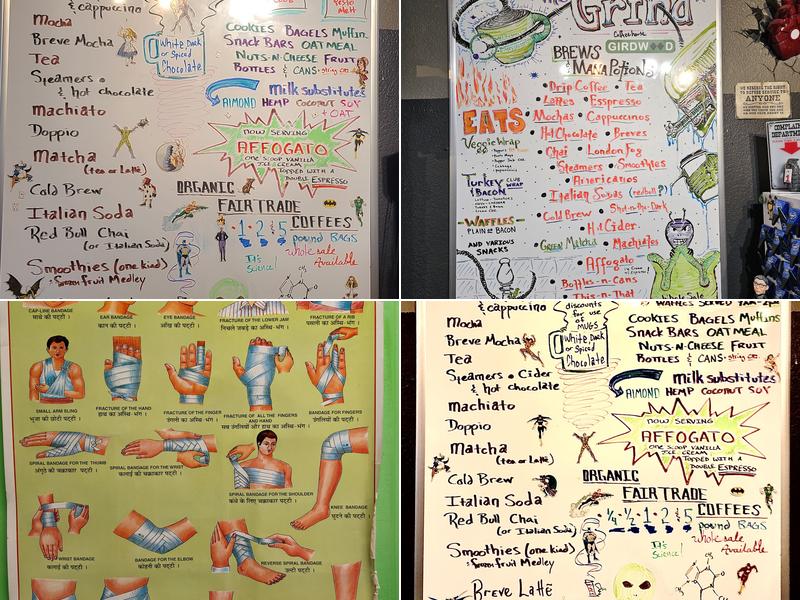 & cappuccino
Mocha
Breve Mocha
Tea
Steamers &
& hot chocolate
machiato
Doppio
Matcha
(tea or Latte)
Cold Brew
Italian Soda
Red Bull Chai
(or Italian Soda)
Smoothies (one kind)
fruit Medley
White, Dark
or Spiced
Chocolate
pesto
melt
COOKIES BAGELS Muffins
SNACK BARS OATMEAL
NUTS-N-CHEESE FRUIT
BOTTLES & CANS
Milk substitutes
ALMOND HEMP COCONUT SOY
+ OAT
NOW SERVING
AFFOGATO
ONE SCOOP VANILLA
ICE CREAM
TOPPED WITH A
DOUBLE ESPRESSO
ORGANIC
FAIR TRADE
COFFEES
1·2·5
pound BAGS
It's
Science!
wholesale
Available
Grind
Coffeehouse
GIRDWOOD
BREWS
& MANA POTIONS
EATS
Veggie Wrap
Turkey CLUB
BACON WRAP
WAFFLES
PLAIN or BACON
AND VARIOUS
SNACKS
Drip Coffee • Tea
Lattes • Esspresso
Mochas • Cappuccinos
Hot Chocolate • Breves
Chai • London Fog
Steamers • Smoothies
Americanos
Italian Sodas (redbull?)
Cold Brew • Shot-n-the-Dark
Hot Cider
Green Matcha • Machiatos
Affogato
Bottles-n-Cans
This-n-That
WE RESERVE THE RIGHT
TO REFUSE SERVICE TO
ANYONE
COMPLAINT
DEPARTMENT
CAP-LINE BANDAGE
EAR BANDAGE
EYE BANDAGE
FRACTURE OF THE LOWER JAW
FRACTURE OF A RIB
कान की पट्टी ।
आँख की पट्टी ।
निचले जबड़े का अस्थि-भंग ।
पसली का अस्थि-भंग ।
SMALL ARM SLING
भुजा की छोटी पट्टी ।
FRACTURE OF THE HAND
हाथ का अस्थि-भंग ।
FRACTURE OF THE FINGER
उंगली का अस्थि-भंग ।
FRACTURE OF ALL THE FINGERS
AND HAND
सब उंगलियों और हाथ का अस्थि-भंग ।
BANDAGE FOR FINGERS
उंगलियों की पट्टी ।
SPIRAL BANDAGE FOR THE THUMB
अंगूठे की चक्राकार पट्टी ।
SPIRAL BANDAGE FOR THE WRIST
कलाई की चक्राकार पट्टी ।
SPIRAL BANDAGE FOR THE SHOULDER
कंधे के लिए चक्राकार पट्टी ।
KNEE BANDAGE
घुटने की पट्टी ।
WRIST BANDAGE
कलाई की पट्टी ।
BANDAGE FOR THE ELBOW
कोहनी की पट्टी ।
REVERSE SPIRAL BANDAGE
उल्टी पट्टी ।
& cappuccino
Mocha
Breve Mocha
Tea
Steamers • Cider
& hot chocolate
machiato
Doppio
Matcha
(tea or Latte)
Cold Brew
Italian Soda
Red Bull Chai
(or Italian Soda)
Smoothies (one kind)
fruit Medley
Breve Latte
discounts
for use
of
MUGS
White, Dark
or Spiced
Chocolate
WAFFLES SERVED 7AM-2pm
COOKIES BAGELS Muffins
SNACK BARS OATMEAL
NUTS-N-CHEESE FRUIT
BOTTLES & CANS
Milk substitutes
ALMOND HEMP COCONUT SOY
NOW SERVING
AFFOGATO
ONE SCOOP VANILLA
ICE CREAM
TOPPED WITH A
DOUBLE ESPRESSO
ORGANIC
FAIR TRADE
COFFEES
¼·½·1·2·5
pound BAGS
It's
Science!
wholesale
Available